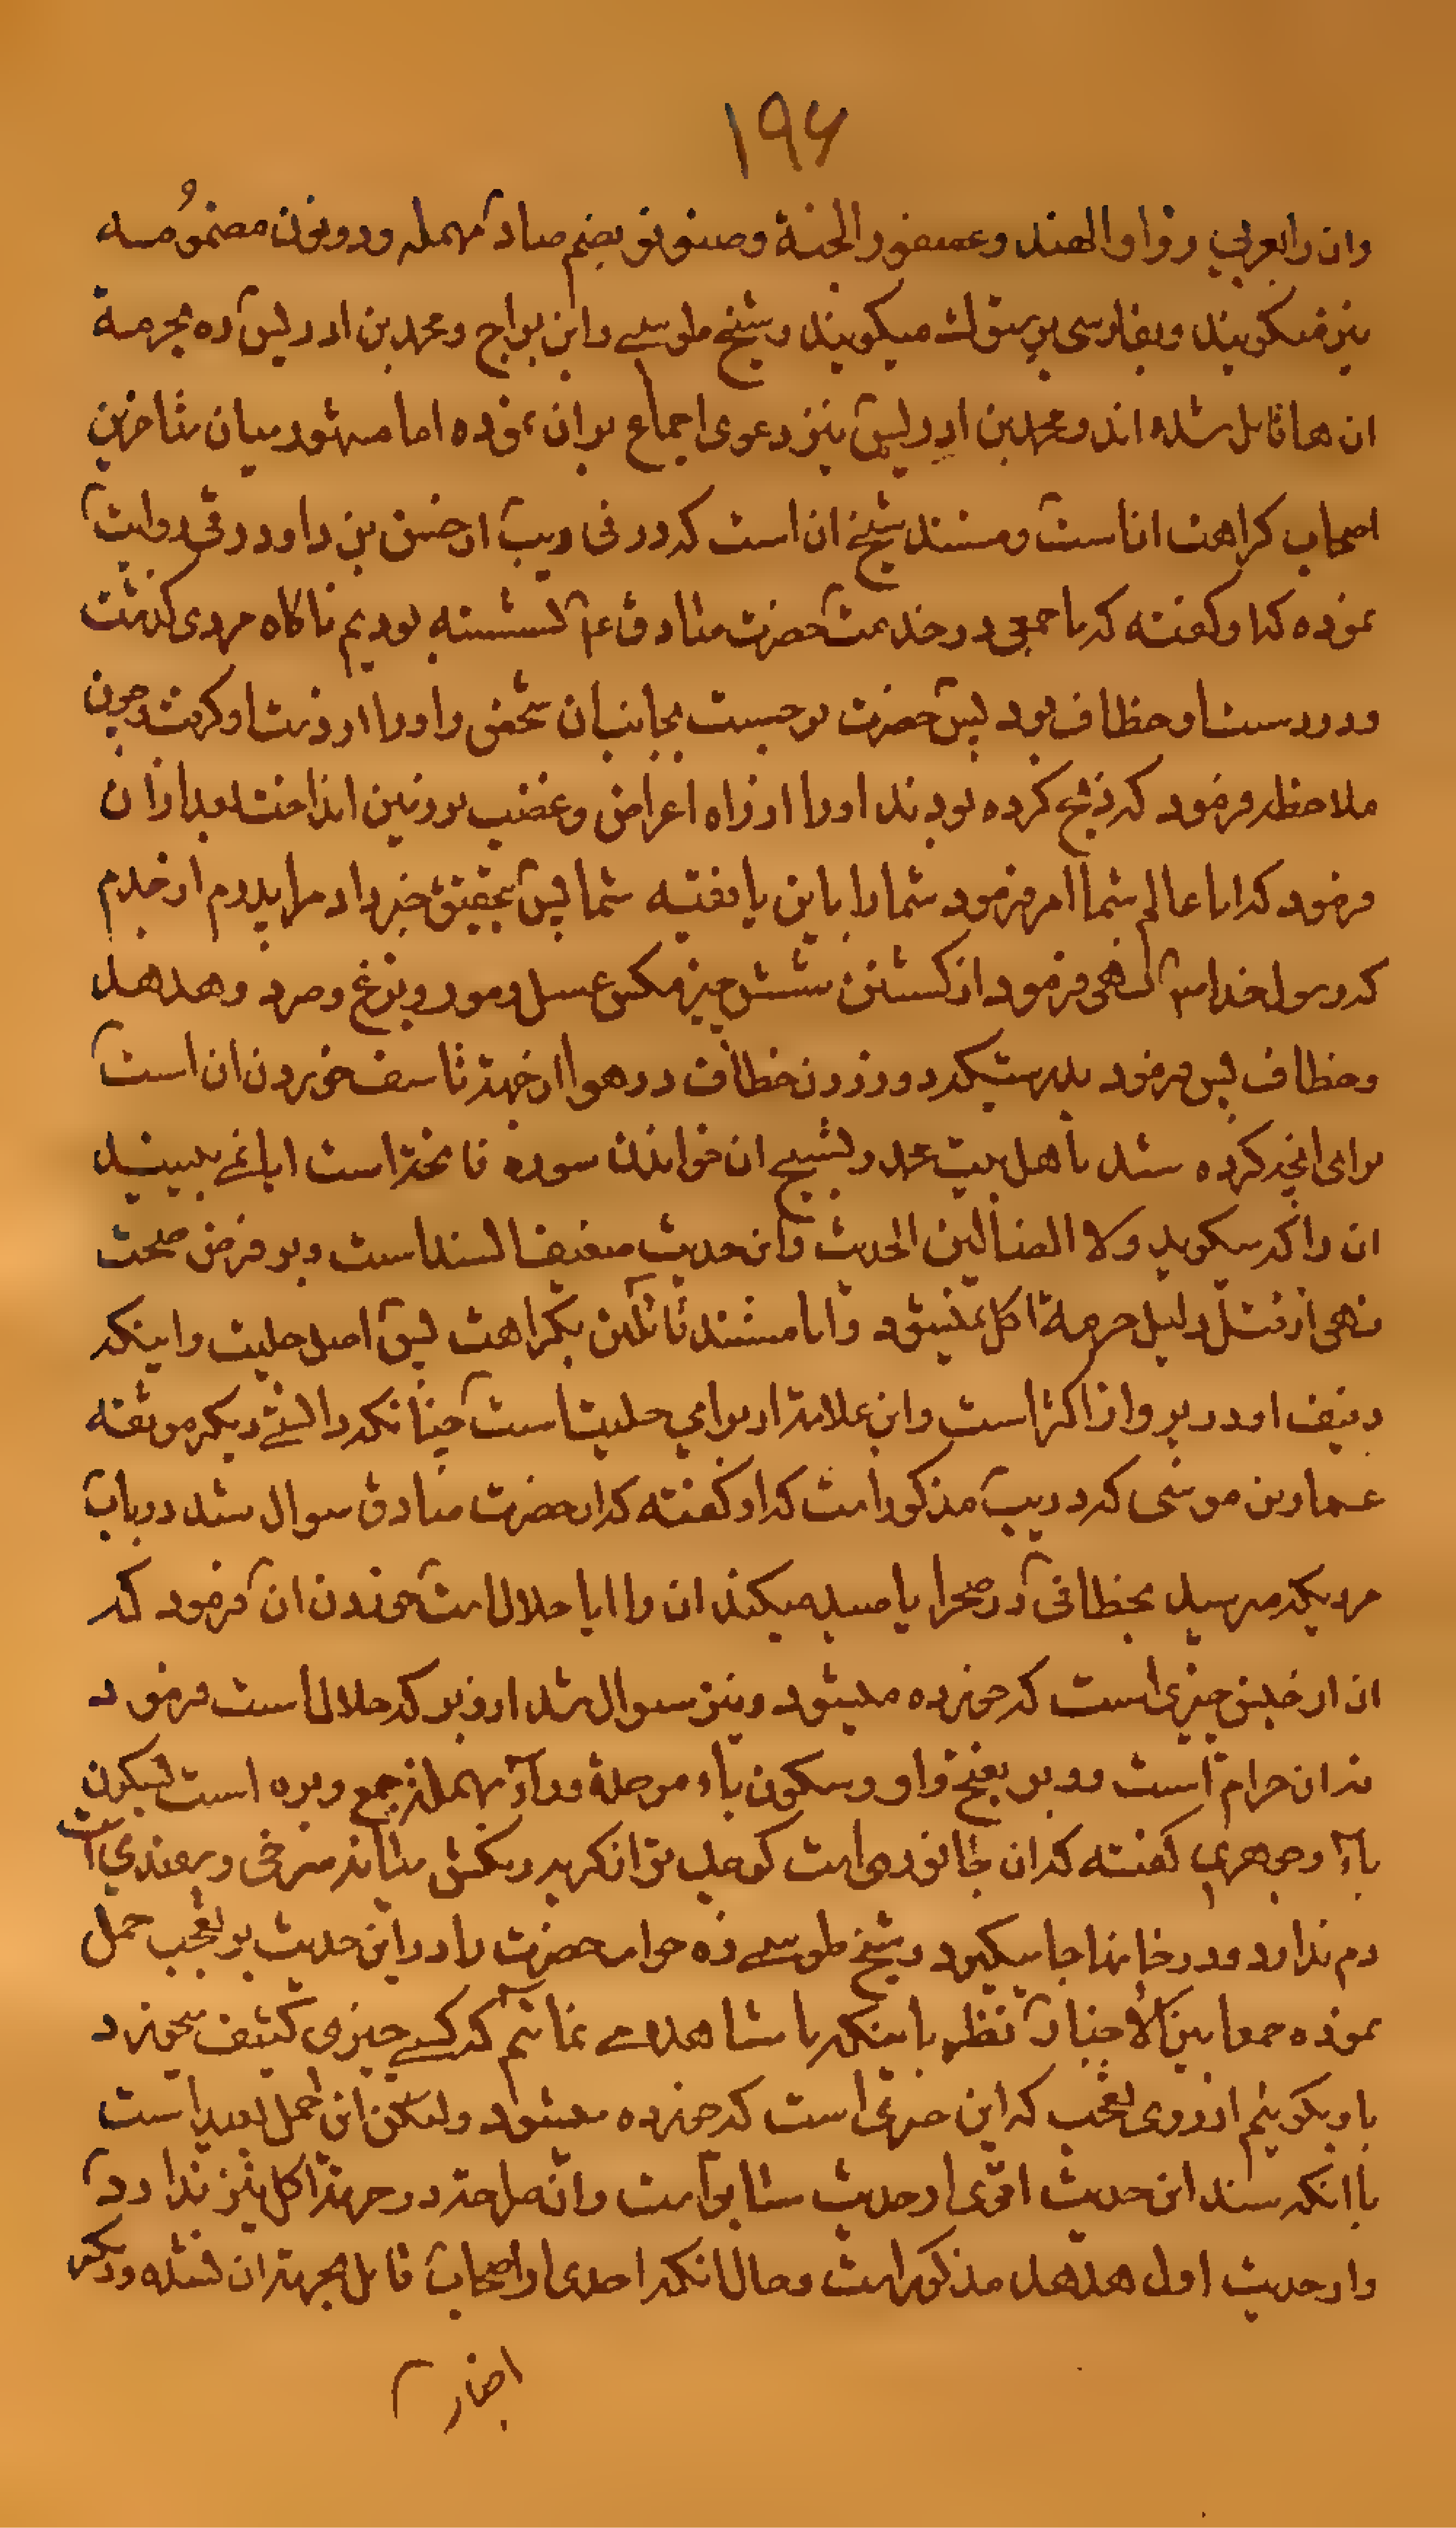 ۱۹۶
وان را بعربی زوار الهند وعصفور الجنة وصنونو بضم صاد مهمله ودو نون مضمومه
نیز میگویند وبفارسی پرستوک میگویند وشیخ طوسی وابن براج ومحمد بن ادریس ره بحرمة
ان ها قایل شده اند ومحمد بن ادریس نیز دعوی اجماع بران نموده اما مشهور میان متاخرین
اصحاب کراهت انست ومستند شیخ ان است که در فی ویب از حسن بن داود رقی روایت
نموده که او کفته که با جمعی در خدمت حضرت صادق ع نشسته بودیم ناکاه مردی کذشت
ودر دست او خطاف بود پس حضرت برجست بجانب ان شخص واو را از دست او کرفت وچون
ملاحظه فرمود که ذبح کرده بودند او را از راه اعراض وغضب بر زمین انداخت بعد ازان
فرمود که ایا عالم شما امر فرمود شما را باین یا فقیه شما پس بتحقیق خبر داد مرا پدرم از جدم
که رسول خدا ص نهی فرمود از کشتن شش چیز مکس عسل ومور ووزغ وصرد وهدهد
وخطاف پس فرمود بدرستیکه دور زدن خطاف در هوا از جهة تاسف خوردن ان است
برای انچه کرده شد باهل بیت محمد وتسبیح ان خواندن سوره فاتحة است ایا نمی بینید
ان را که میکوید ولا الضالین الحدیث واین حدیث ضعیف السند است وبر فرض صحت
نهی از قتل دلیل حرمة اکل نمیشود واما مستند قائلین بکراهت پس اصل حلیت واینکه
دفیف او در پرواز اکثر است واین علامتها برای حلیت است چنانکه دانستی دیکر موثقه
عمار بن موسی که در یب مذکور است که او کفته که از حضرت صادق سوال شد در باب
مردیکه میرسد بخطافی در صحرا یا صید میکند ان را ایا حلال است خوردن ان فرمود که
ان از جنس چیزی است که خورده میشود ونیز سوال شد از وبر که حلال است فرمود
نه ان حرام است ووبر بفتح واو وسکون باء موحدة وراء مهمله جمع وبره است بسکون
باء وجوهری کفته که ان جانوری است کوچک تر از کربه ورنکش میانه سرخی وسفیدی است
دم ندارد ودر خانها جا میکیرد وشیخ طوسی ره جواب حضرت را در این حدیث بر تعجب حمل
نموده جمعا بین الاخبار نظیر باینکه ما مشاهده می نمائیم که کسی چیزی کثیف میخورد
باو بکوئیم از روی تعجب که این چیزی است که خورده میشود ولیکن این حمل بعید است
با انکه سند این حدیث اقوی از حدیث سابق است وانه صراحة در حرمة اکل نیز ندارد
ودر حدیث اول هدهد مذکور است وحال انکه احدی از اصحاب قایل بحرمة ان نشده ودیکر
اخبار